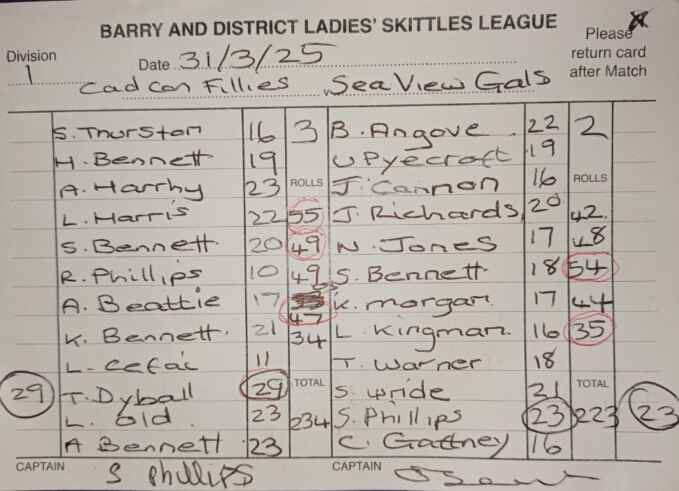 BARRY AND DISTRICT LADIES' SKITTLES LEAGUE
Division 1
Date 31/3/25
Please return card after Match
Cadcon Fillies v Sea View Gals
S. Thurston 16 3 B. Angove 22 2
H. Bennett 19 U Pyecroft 19
A. Harrhy 23 ROLLS J. Cannon 16 ROLLS
L. Harris 22 55 J. Richards 20 42
S. Bennett 20 49 N. Jones 17 48
R. Phillips 10 49 S. Bennett 18 54
A. Beattie 17 47 K. Morgan 17 44
K. Bennett. 21 34 L. Kingman. 16 35
L. Cefai 11 T. Warner 18
29 T. Dyball 29 TOTAL S. Wride 21 TOTAL
L. Old 23 234 S. Phillips 23 223 23
A Bennett 23 C. Gattney 16
CAPTAIN S Phillips CAPTAIN